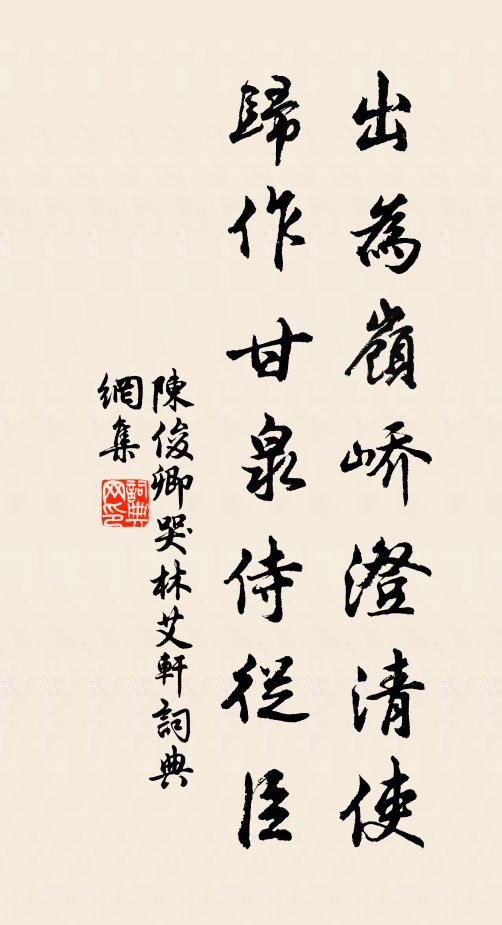 出為嶺嶠澄清使
歸作甘泉侍從臣
陳俊卿哭林艾軒詞典
網集
詞典
网印